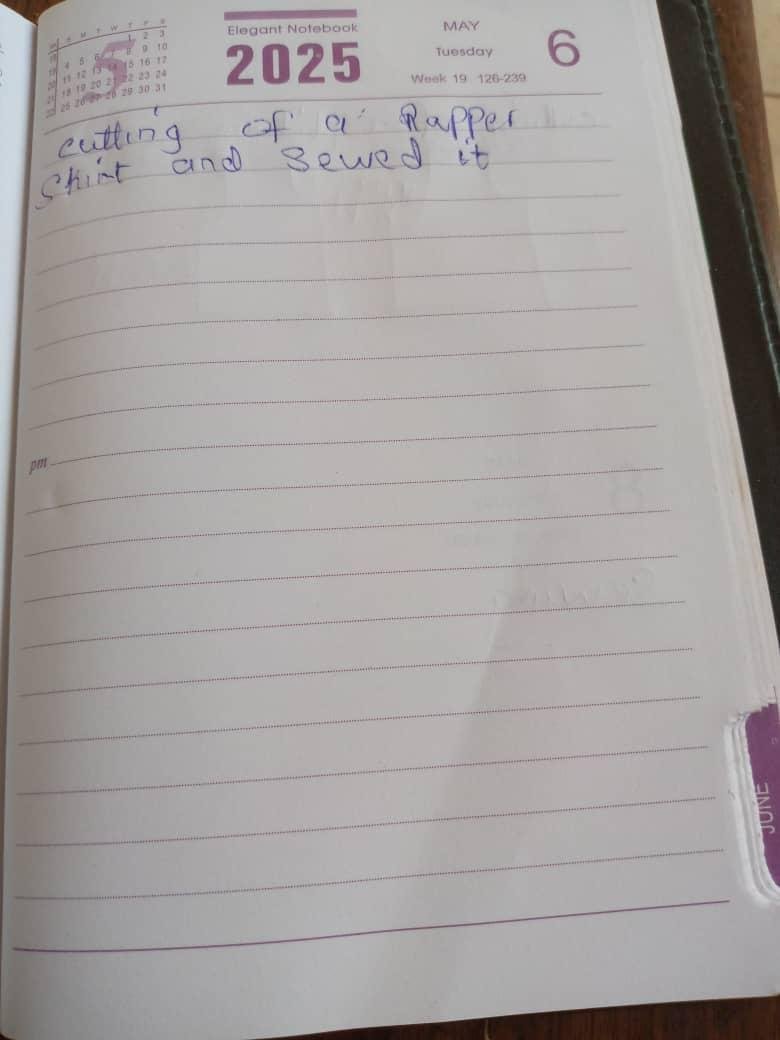 Elegant Notebook
2025
MAY
Tuesday
Week 19 126-239
6
S M T W T F S
1 2 3
4 5 6 7 8 9 10
11 12 13 14 15 16 17
18 19 20 21 22 23 24
25 26 27 28 29 30 31
5
cutting of a Rapper
Skirt and Sewed it
pm
JUNE